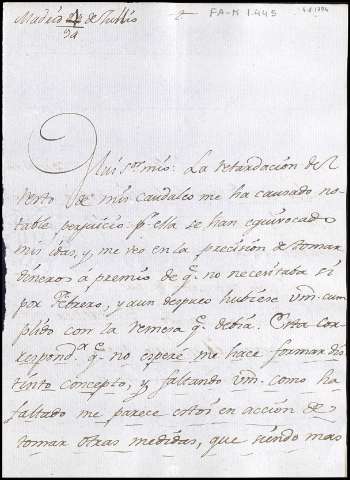 Madrid 4 de Jullio
94
FA-M 1.445
Mui s.or mio: La retardacion del
resto de mis caudales me ha causado no-
table perjuicio: p.r ella se han equivocado
mis idas, y me veo en la precision de tomar
dineros á premio de q.e no necesitaba si
por Febrero, y aun despues hubiese vm. cum-
plido con la remesa q.e debia. Esta cor-
respond.a q.e no esperé me hace formar dis-
tinto concepto, y faltando vm. como ha
faltado me parece estoi en accion de
tomar otras medidas, que siendo mas